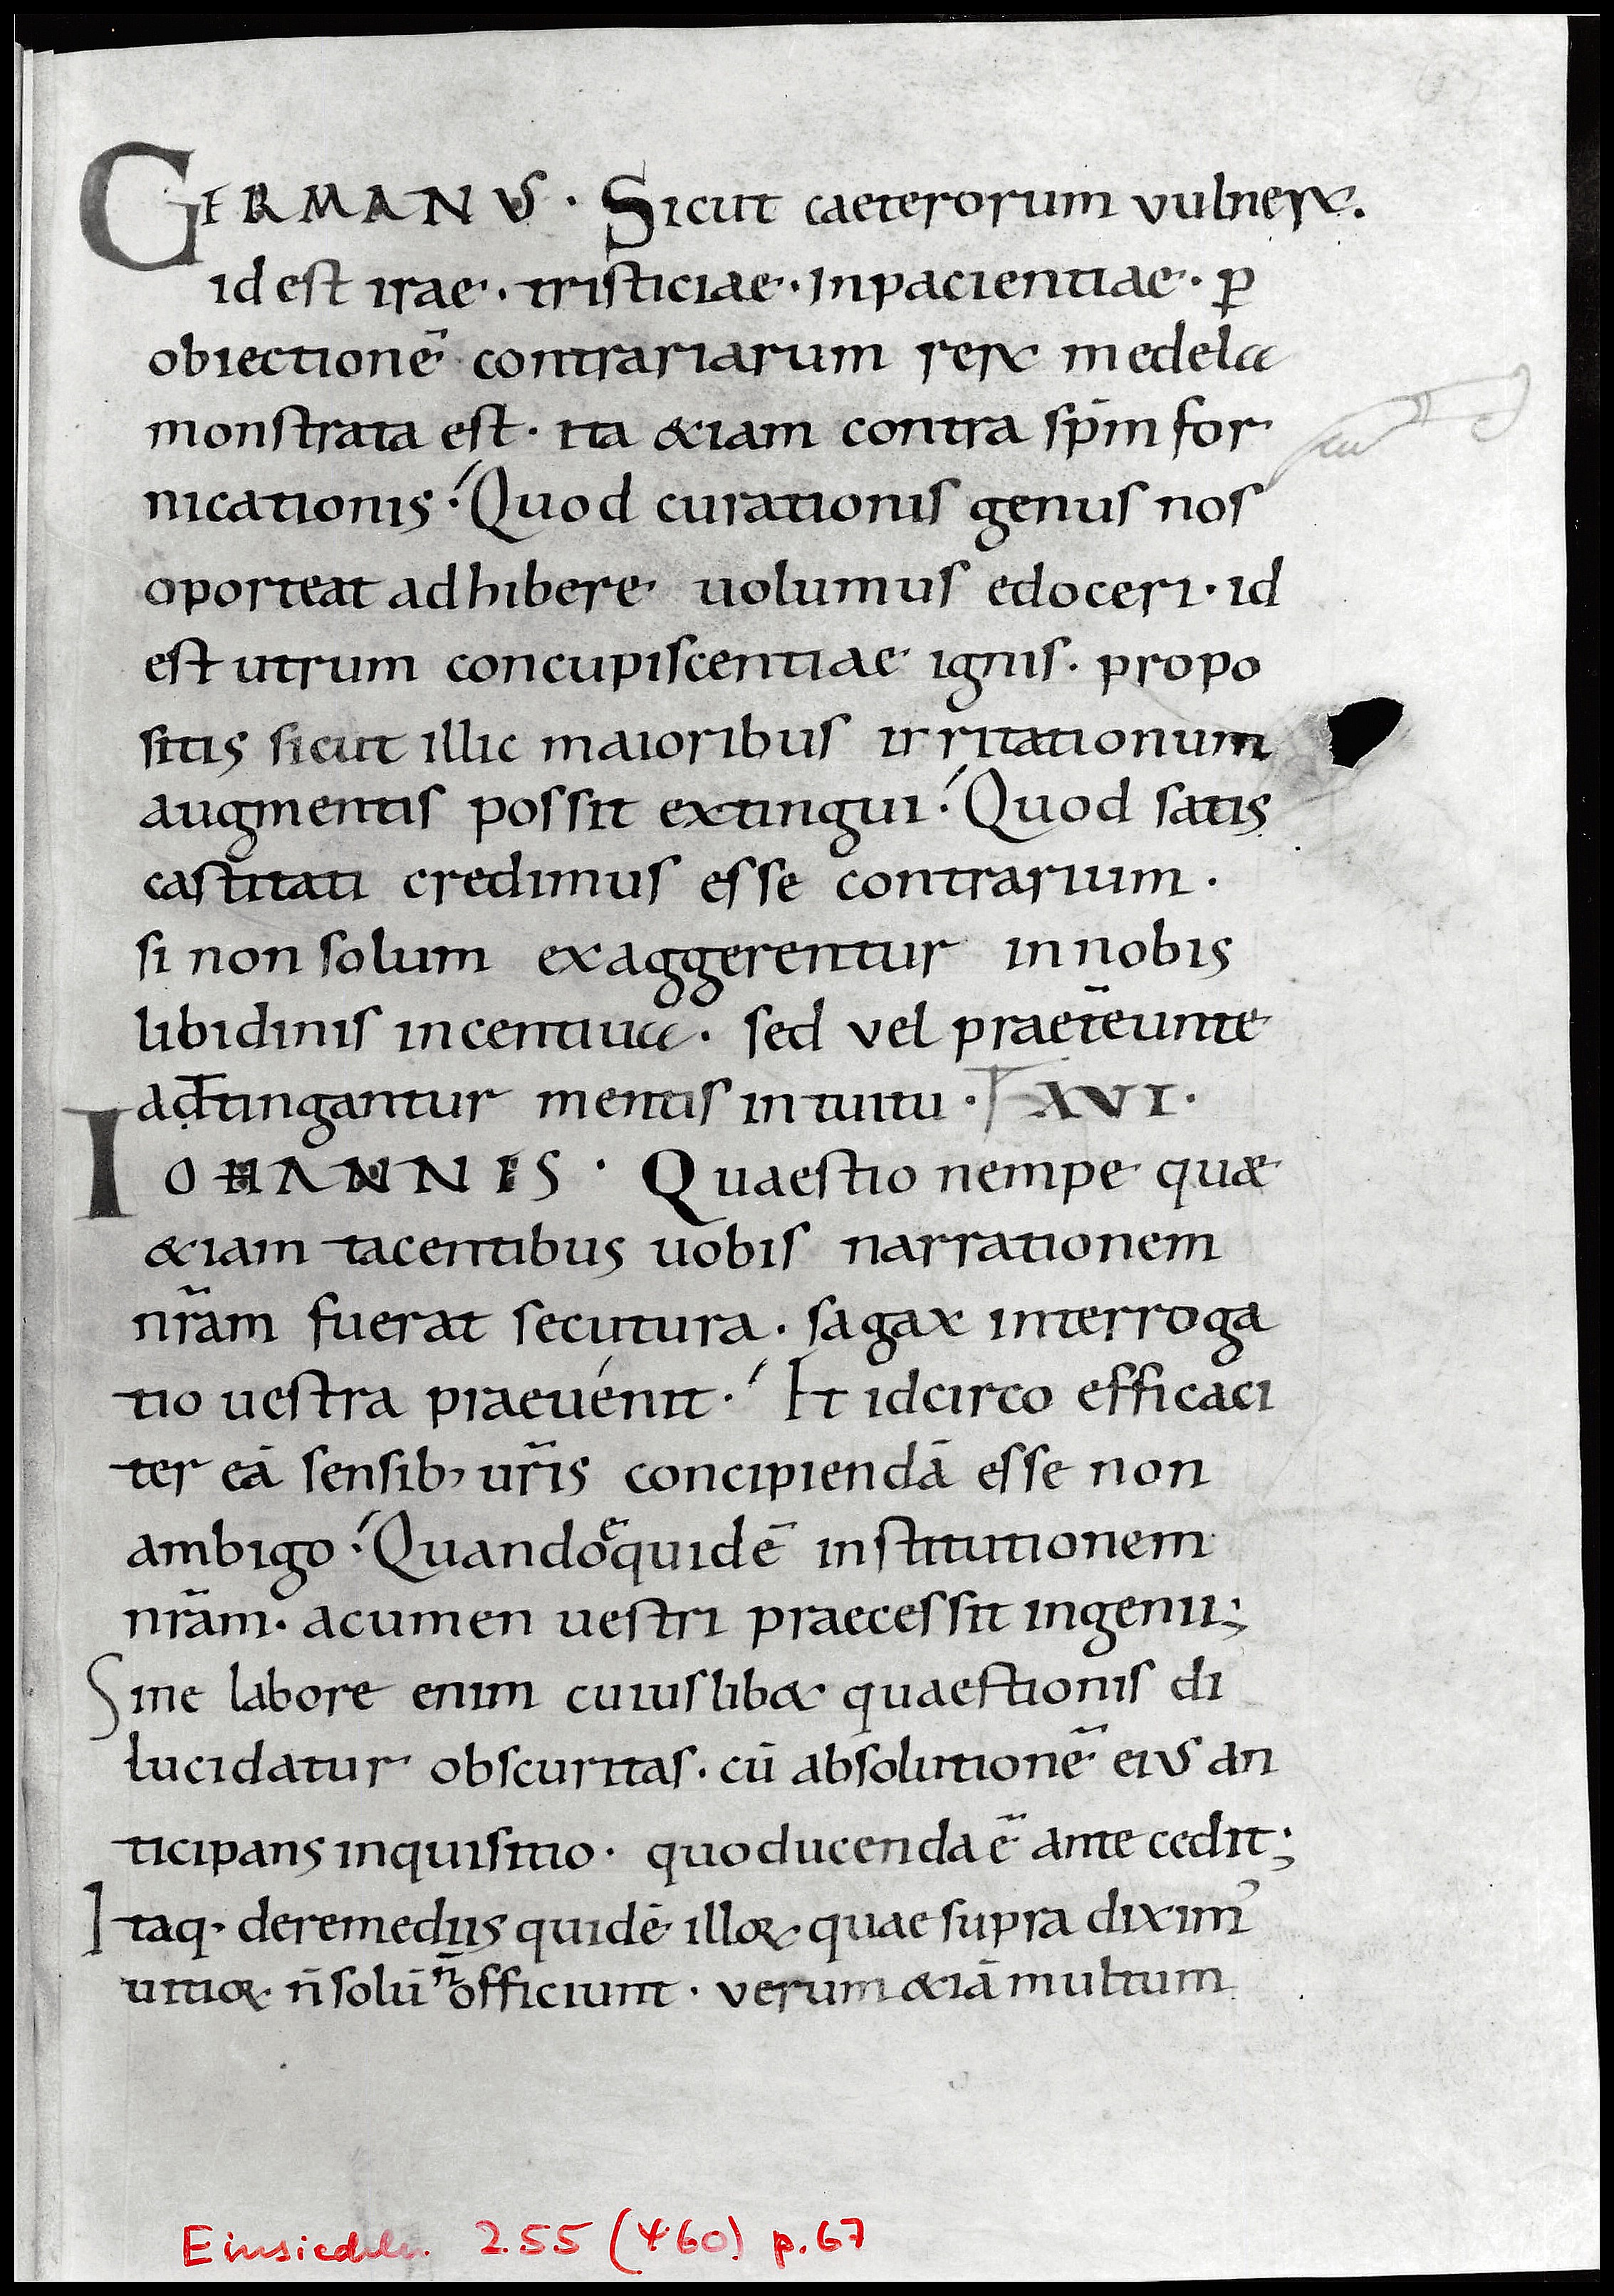 GERMANUS · Sicut caeterorum vulneꝝ.
id est irae · tristiciae · inpacientiae · ꝑ
obiectionē contrariarum reꝝ medela
monstrata est · ita &iam contra sp̄m for
nicationis · Quod curationis genus nos
oporteat adhibere uolumus edoceri · id
est utrum concupiscentiae ignis · propo
sitis sicut illic maioribus irritationum
augmentis possit extingui · Quod satis
castitati credimus esse contrarium ·
si non solum exaggerentur in nobis
libidinis incentiua · sed vel praet̄eunte
adtingantur mentis intuitu · XVI ·
IOHANNES · Quaestio nempe quæ
&iam tacentibus uobis narrationem
nr̄am fuerat secutura · sagax interroga
tio uestra praeuénit · Et idcirco efficaci
ter eā sensib; ur̄is concipiendā esse non
ambigo · Quandoequidē institutionem
nr̄am · acumen uestri praecessit ingenii;
Sine labore enim cuiuslib& quaestionis di
lucidatur obscuritas · cū absolutionē eius an
ticipans inquisitio · quo ducenda ē ante cedit;
Itaq· de remediis quidē illoꝝ · quae supra diximꝰ
uitioꝝ n̄ solū n̄ officiunt · verum &iā multum
Einsiedeln 255 (460) p. 67